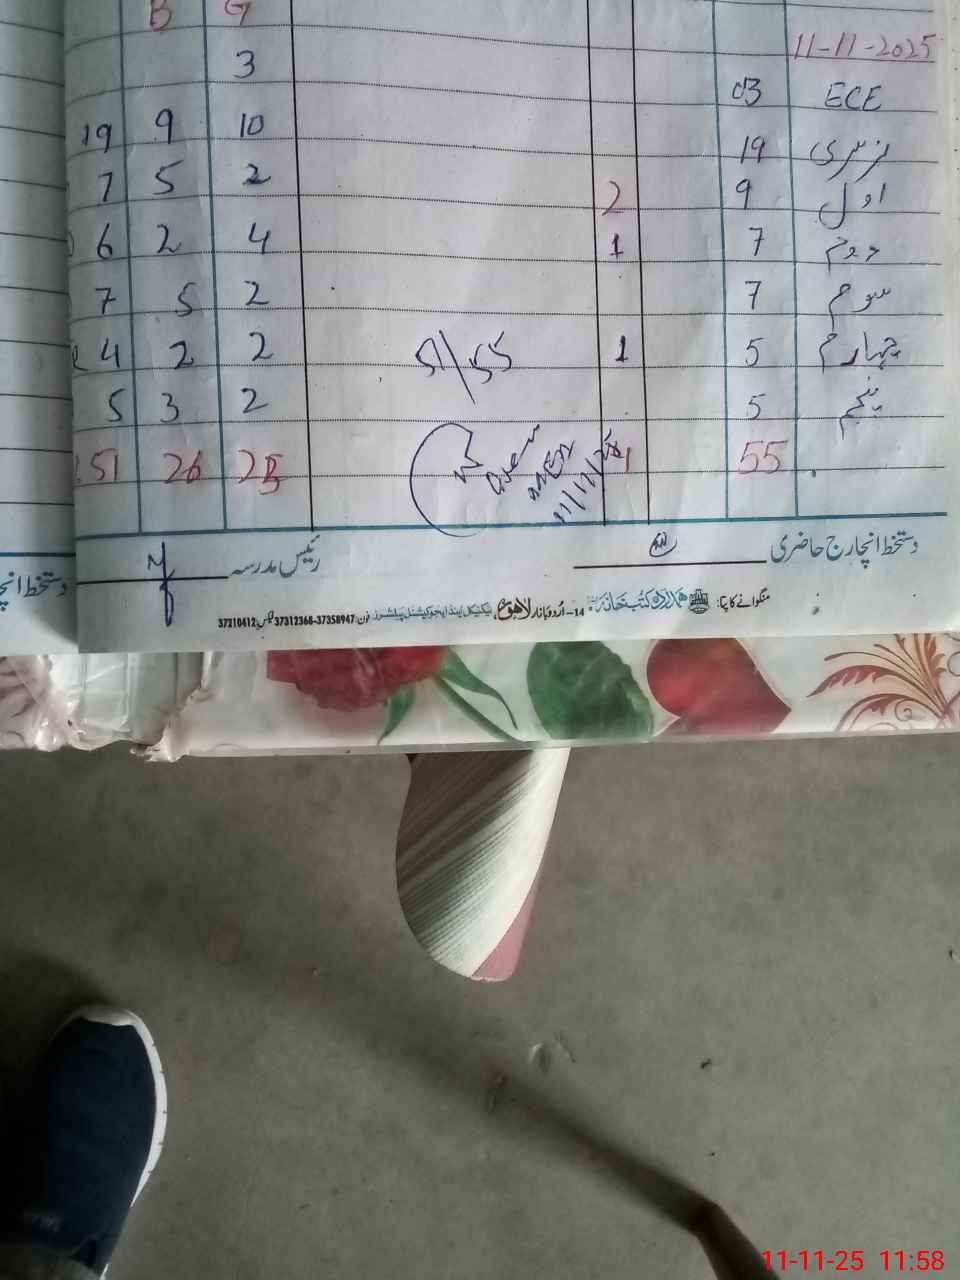 B G
11-11-2025
ECE 03 3
نرسری 19 10 9 19
اول 9 2 2 5 7
دوم 7 1 4 2 6
سوم 7 2 5 7
چہارم 5 1 2 2 4
پنجم 5 2 3 5
55 4 25 26 51
51/55
11/11/25
دستخط انچارج حاضری
رئیس مدرسہ
دستخط انچا
منگوانے کا پتا: ہمدرد کتب خانہ 14-اردو بازار لاہور، ٹیکنیکل اینڈ ایجوکیشنل پبلشرز فون: 37312368-37358947 فیکس: 37210412
11-11-25 11:58